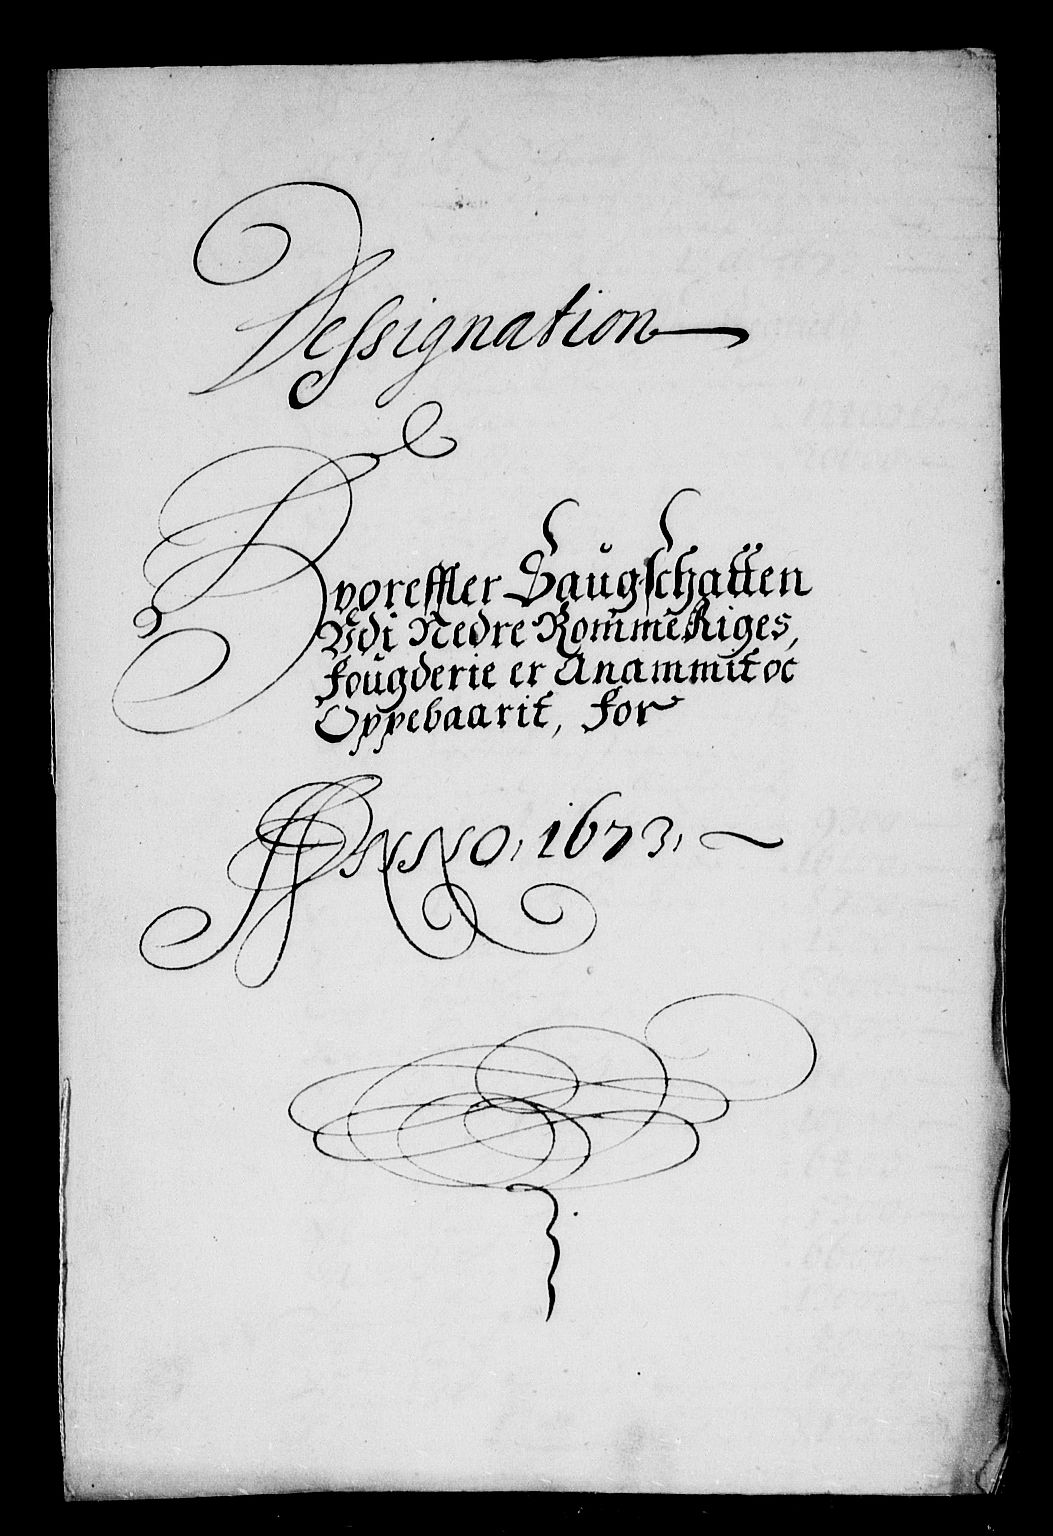 Dessignation
Hvoreffter SaugSchatten
Vdi Nedre RommeRiges,
Fougderie er Anammit oc
Oppebaarit, For
ANNO, 1673,